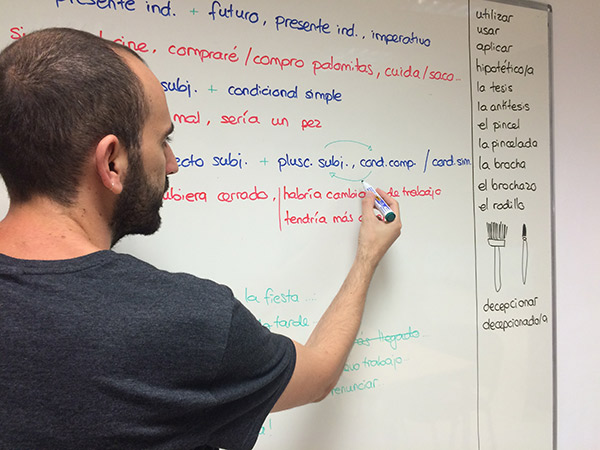 presente ind. + futuro, presente ind., imperativo
cine, compraré/compro palomitas, cuida/saco...
subj. + condicional simple
mal, sería un pez
ecto subj. + plusc. subj., cond. comp. / cond. sim.
ubiera cerrado, habría cambio de trabajo
tendría más
la fiesta ...
tarde
llegado
trabajo
renunciar
utilizar
usar
aplicar
hipotético/a
la tesis
la antítesis
el pincel
la pincelada
la brocha
el brochazo
el rodillo
decepcionar
decepcionado/a